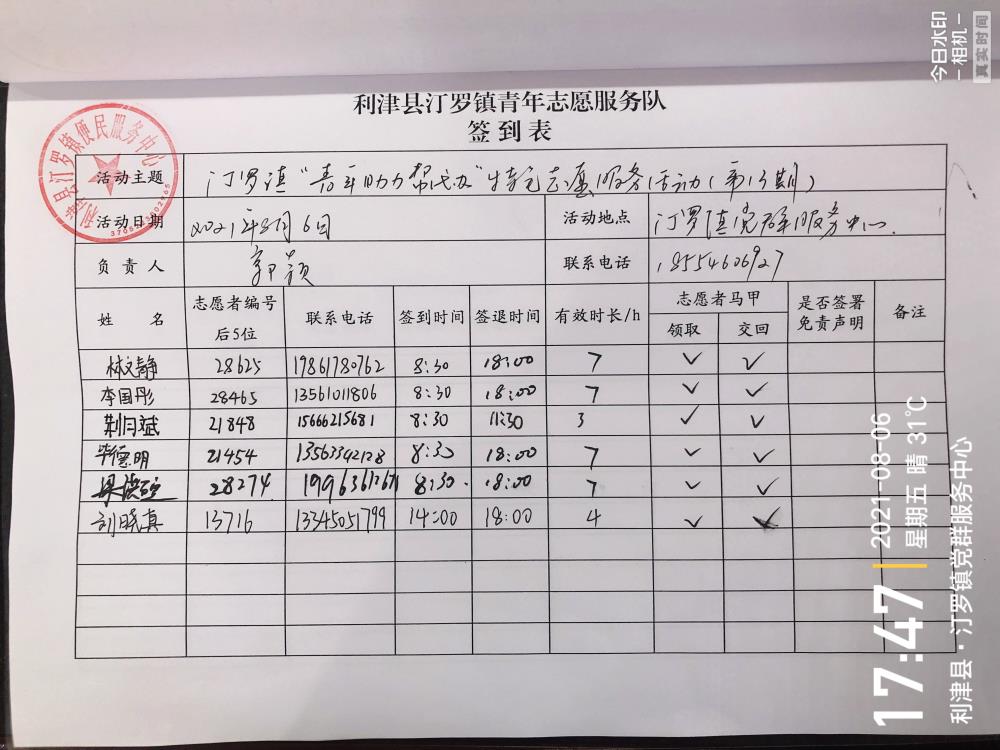 利津县汀罗镇青年志愿服务队
签到表
活动主题 汀罗镇“青年助力帮代办”特色志愿服务活动(第13期)
活动日期 2021年8月6日 活动地点 汀罗镇党群服务中心.
负责人 郭颖 联系电话 18554606927
姓 名 志愿者编号后5位 联系电话 签到时间 签退时间 有效时长/h 志愿者马甲 领取 交回 是否签署免责声明 备注
林文静 28625 19861780762 8:30 18:00 7 ✓ ✓
李国彤 28465 13561011806 8:30 18:00 7 ✓ ✓
荆曰斌 21848 15666215681 8:30 11:30 3 ✓ ✓
毕德明 21454 13563342128 8:30 18:00 7 ✓ ✓
28274 8:30 18:00 7 ✓ ✓
刘晓真 13716 13345051799 14:00 18:00 4 ✓ ✓
利津县汀罗镇便民服务中心
今日水印
相机
真实时间
17:47
2021-08-06
星期五 晴 31℃
利津县·汀罗镇党群服务中心